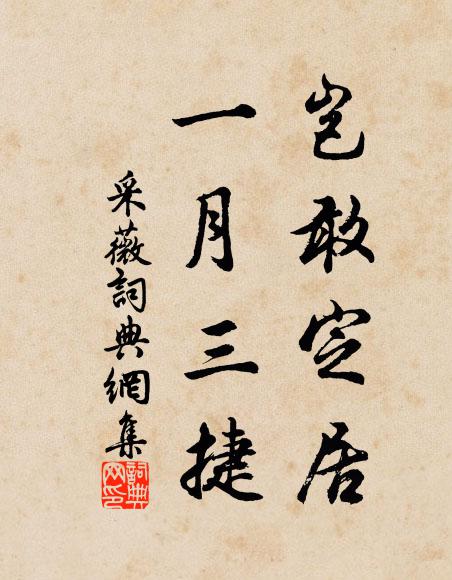 岂敢定居
一月三捷
采薇詞典網集
詞典网印